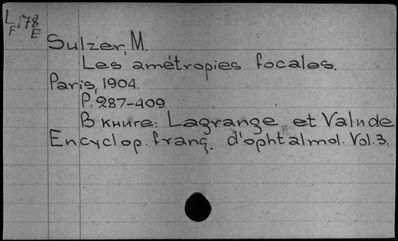 L 178
F E
Sulzer, M.
Les amétropies focales.
Paris, 1904.
P. 287-409.
В книге: Lagrange et Valude
Encyclop. franç. d'ophtalmol. Vol. 3.